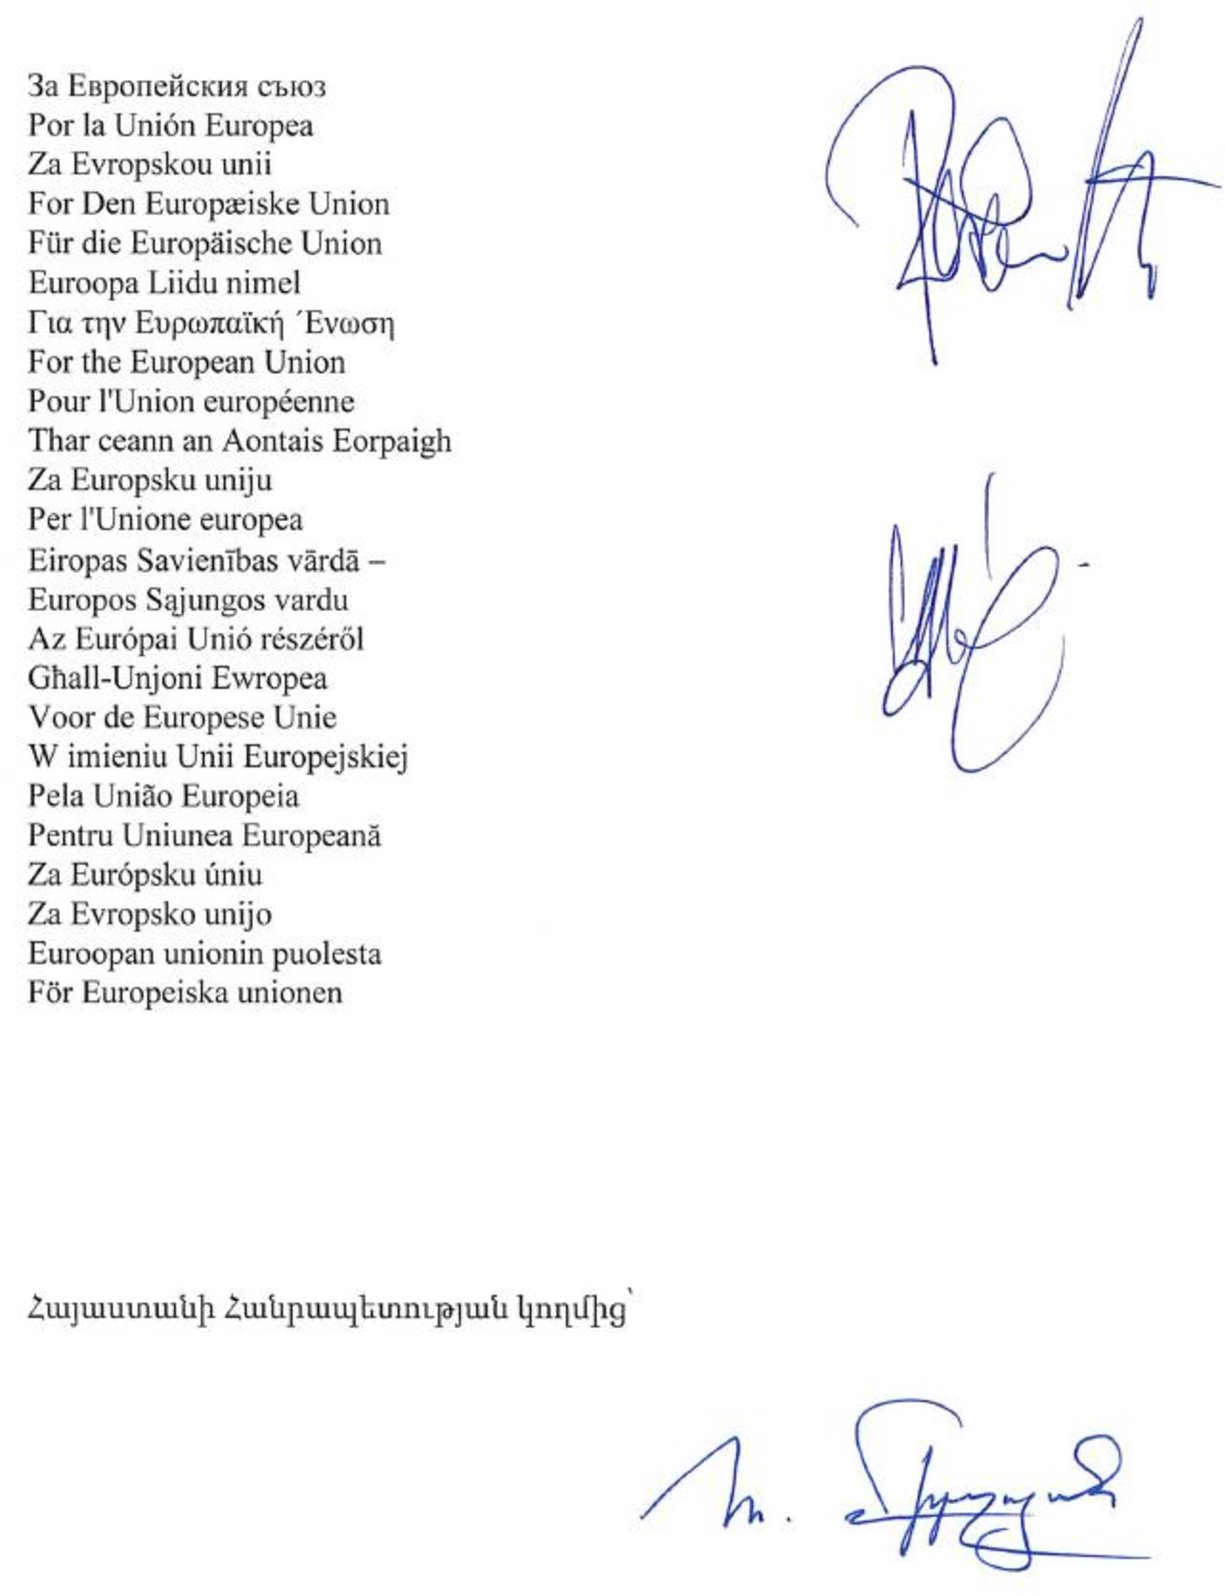 За Европейския съюз
Por la Unión Europea
Za Evropskou unii
For Den Europæiske Union
Für die Europäische Union
Euroopa Liidu nimel
Για την Ευρωπαϊκή Ένωση
For the European Union
Pour l'Union européenne
Thar ceann an Aontais Eorpaigh
Za Europsku uniju
Per l'Unione europea
Eiropas Savienības vārdā –
Europos Sąjungos vardu
Az Európai Unió részéről
Għall-Unjoni Ewropea
Voor de Europese Unie
W imieniu Unii Europejskiej
Pela União Europeia
Pentru Uniunea Europeană
Za Európsku úniu
Za Evropsko unijo
Euroopan unionin puolesta
För Europeiska unionen
Հայաստանի Հանրապետության կողմից՝